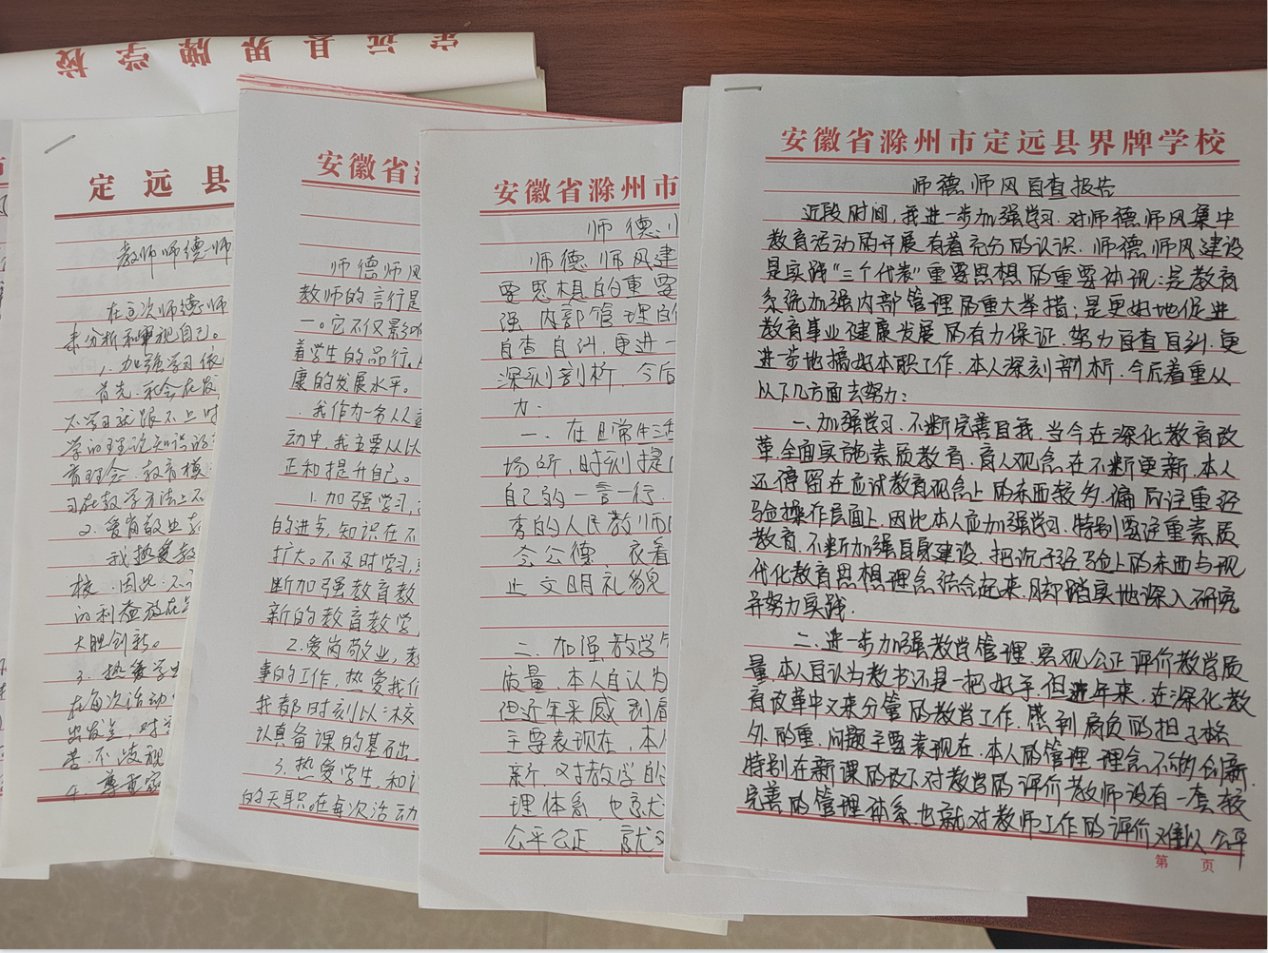 定远县界牌学校
定远县
教师师德师
在这次师德师
来分析和审视自己。
1.加强学习
首先,
不学习就跟不上时
学的理论知识的
育理念、教育模
习在教学方法上不
2.爱岗敬业
我热爱教
校。因此,不
的利益放在
大胆创新。
3.热爱学生
在每次活动
出发点,对
苦、不凌视
4.尊重家
安徽省滁
师德师风
教师的言行是
一。它不仅影响
着学生的品行,
康的发展水平。
我作为一名人
动中,我主要从以
正和提升自己。
1.加强学习,
的进步,知识在不
扩大。不及时学习,
断加强教育教
新的教育教学
2.爱岗敬业,
事的工作,热爱我们
我都时刻以学校
认真备课的基础
3.热爱学生,和
的天职。在每次活动
安徽省滁州市
师德师
师德师风建
要思想的重要
强内部管理的
自查自纠,更进一
深刻剖析,今后
力。
一、在日常生活
场所,时刻提
自己的一言一行,
秀的人民教师
会公德,衣着
止文明礼貌
二、加强教学管
质量,本人自认为
但近年来感到肩
主要表现在,本人
新,对教学的
理体系,也就
公平公正,就
安徽省滁州市定远县界牌学校
师德师风自查报告
近段时间,我进一步加强学习,对师德师风集中
教育活动的开展有着充分的认识。师德师风建设
是实践“三个代表”重要思想的重要体现;是教育
系统加强内部管理的重大举措;是更好地促进
教育事业健康发展的有力保证。努力自查自纠,更
进一步地搞好本职工作,本人深刻剖析,今后着重从
以下几方面去努力:
一、加强学习,不断完善自我。当今在深化教育改
革,全面实施素质教育,育人观念在不断更新,本人
还停留在应试教育观念上的东西较多,偏向注重经
验操作层面上,因此本人应加强学习,特别要注重素质
教育,不断加强自身建设,把沉于经验上的东西与现
代化教育思想理念结合起来,脚踏实地深入研究
并努力实践。
二、进一步加强教学管理,客观公正评价教学质
量,本人自认为教书还是一把好手,但近年来,在深化教
育改革中又来分管的教学工作,感到肩负的担子格
外的重,问题主要表现在,本人的管理理念不够创新,
特别在新课的改下对教学的评价教师没有一套较
完善的管理体系,也就对教师工作的评价难以公平
第 页